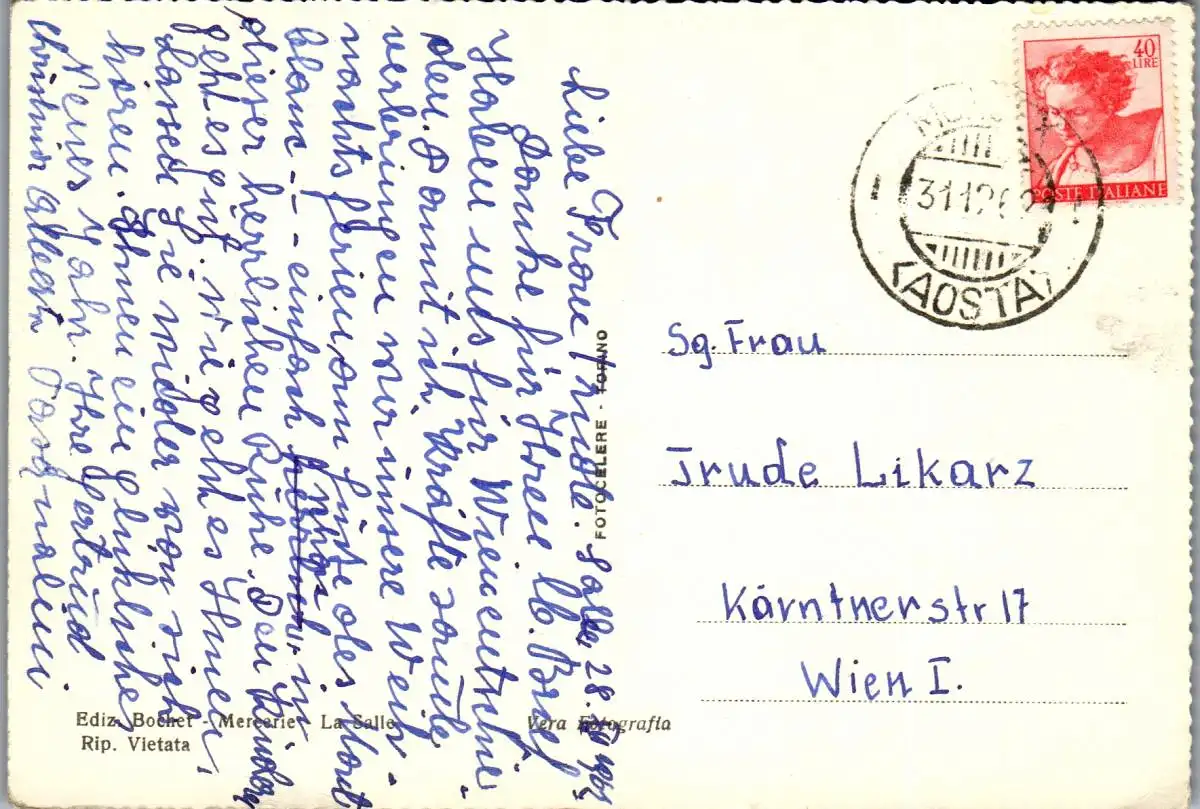 Salle, 28.
Liebe Frau Trude.
Danke für Ihren lb. Brief
Haben uns für Wien entschie-
den. Damit ich Kräfte samle
verbringen wir unsere Weih-
nachtsferien am Fuße des Mont
Blanc - - einfach uns in
dieser herrlichen Ruhe. Den Kindern
geht es gut. Wie geht es Ihnen,
lassen Sie wider von sich
hören. Ihnen ein glückliches
Neues Jahr. Ihre Gertrud
FOTOCELERE - TORINO
Ediz. Bochet - Mercerie - La Salle
Rip. Vietata
Vera Fotografia
40
LIRE
POSTE ITALIANE
31.12.62
(AOSTA)
Sg. Frau
Trude Likarz
Kärntnerstr 17
Wien I.